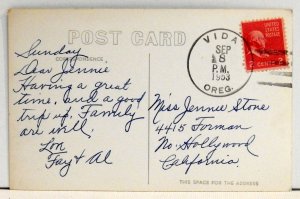 POST CARD
CORRESPONDENCE
Sunday
Dear Jennie
Having a great
time, and a good
trip up, Family
are well.
Lon
Fay & Al
VIDA
SEP
8
P.M.
1953
OREG.
UNITED STATES
POSTAGE
2 CENTS 2
Miss Jennie Stone
4415 Forman
No. Hollywood
California
THIS SPACE FOR THE ADDRESS